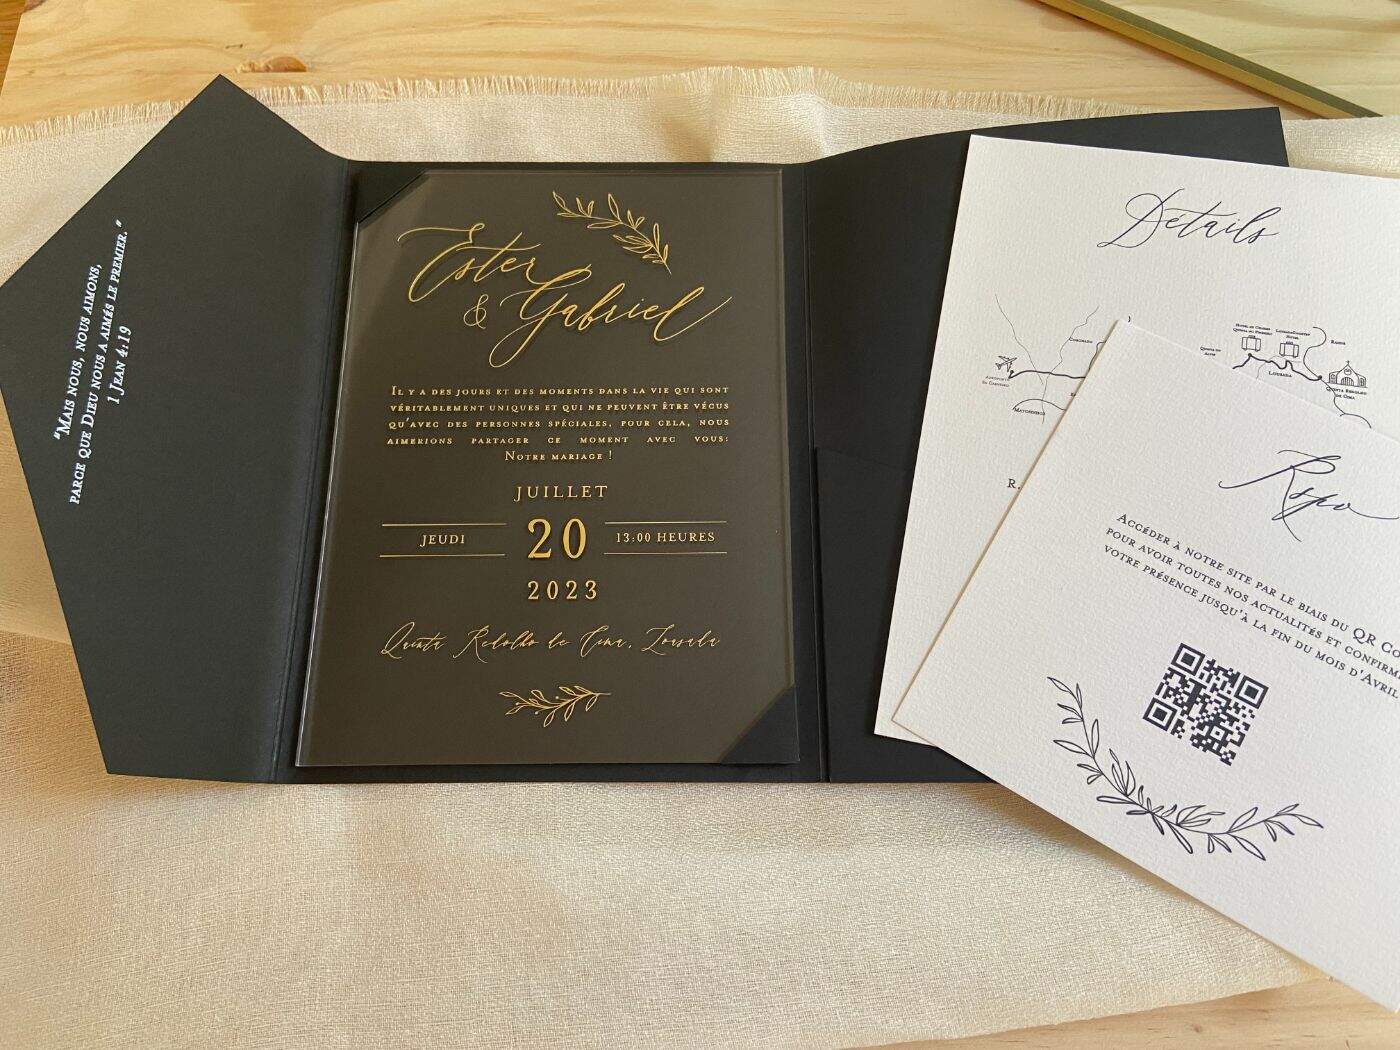 "Mais nous, nous aimons,
parce que Dieu nous a aimés le premier."
1 Jean 4:19
Ester
& Gabriel
Il y a des jours et des moments dans la vie qui sont
véritablement uniques et qui ne peuvent être vécus
qu'avec des personnes spéciales, pour cela, nous
aimerions partager ce moment avec vous:
Notre mariage !
JUILLET
JEUDI
20
13:00 HEURES
2023
Quinta Redolho de Cima, Lousada
Détails
Lousada
Matosinhos
R.
Rsvp
Accéder à notre site par le biais du QR Co
pour avoir toutes nos actualités et confirme
votre présence jusqu'à la fin du mois d'Avril